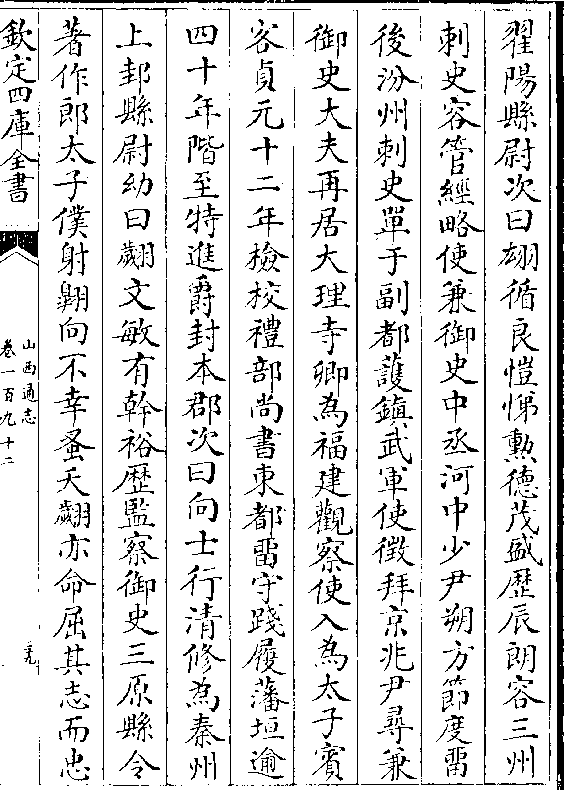 翟陽縣尉次曰翃循良愷悌勲徳茂盛歴辰朗容三州
刺史容管經略使兼御史中丞河中少尹朔方節度留
後汾州刺史單于副都護鎮武軍使徴拜京兆尹尋兼
御史大夫再居大理寺卿為福建觀察使入為太子賓
客貞元十二年檢校禮部尚書東都留守踐履藩垣逾
四十年階至特進爵封本郡次曰向士行清修為秦州
上邽縣尉幼曰翽文敏有幹裕歴監察御史三原縣令
著作郎太子僕射翺向不幸蚤夭翽亦命屈其志而忠
欽定四庫全書
山西通志
卷一百九十二